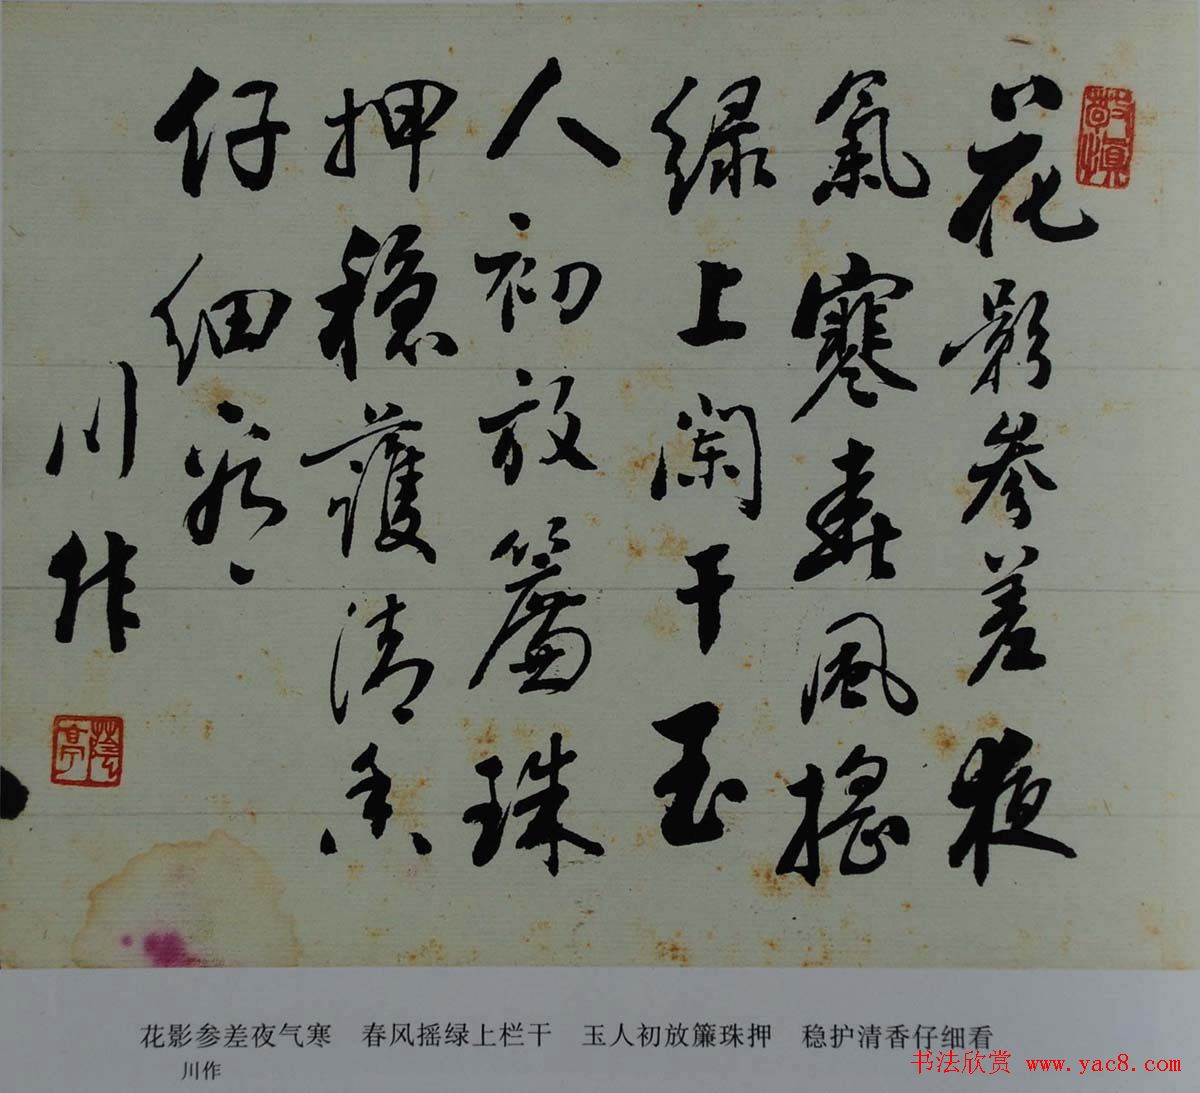 花影参差夜
氣寒春風摇
绿上阑干玉
人初放簾珠
押穏護清香
仔细看
川作
蔭亭
花影参差夜气寒　春风摇绿上栏干　玉人初放簾珠押　稳护清香仔细看
川作
书法欣赏 www.yac8.com